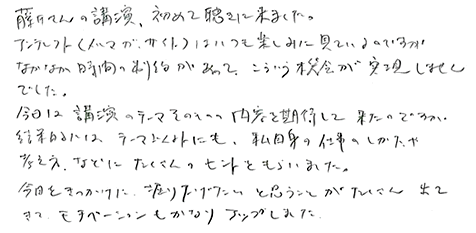 藤沢さんの講演、初めて聴きに来ました。
アンテレクト(メルマガ、サイト)はいつも楽しみに見ているのですが
なかなか時間の制約があって、こういう機会が実現しません
でした。
今日は講演のテーマそのものの内容を期待して来たのですが、
結果的には、テーマ以外にも、私自身の仕事のしかたや
考え方、などにたくさんのヒントをもらいました。
今日をきっかけに、掘り下げたいと思うことがたくさん出て
きて、モチベーションもかなりアップしました。